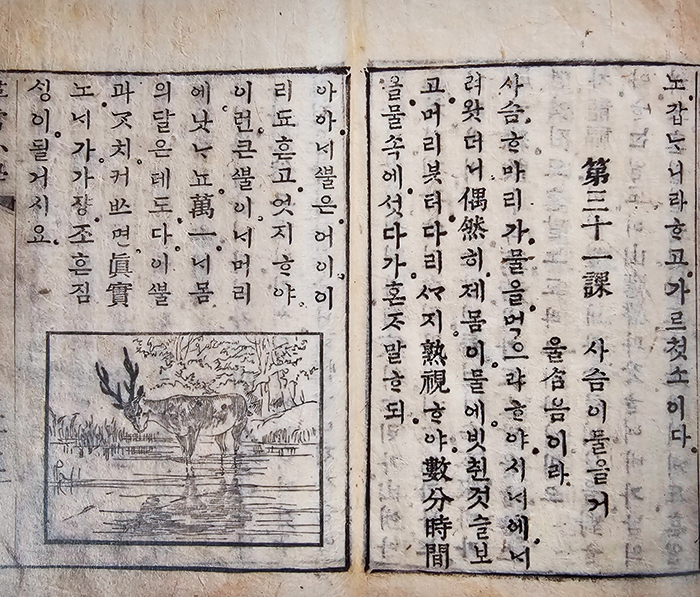 노갑ᄂᆞ니라ᄒᆞ고가르첫소이다
第三十一課 사슴이물을거
울삼음이라
사슴ᄒᆞᆫ마리가물을먹으랴ᄒᆞ야시ᄂᆡ에ᄂᆡ
려왓더니偶然히제몸이물에빗췬것슬보
고머리붓터다리ᄭᆞ지熟視ᄒᆞ야數分時間
을물속에섯다가혼ᄌᆞ말ᄒᆞ되
아아ᄂᆡᄲᅮᆯ은어이이
리됴흔고엇지ᄒᆞ야
이런큰ᄲᅮᆯ이ᄂᆡ머리
에낫ᄂᆞ뇨萬一ᄂᆡ몸
의달은데도다이ᄲᅮᆯ
과ᄀᆞᆺ치커ᄡᅳ면眞實
노ᄂᆡ가가쟝죠흔짐
싱이될거시요